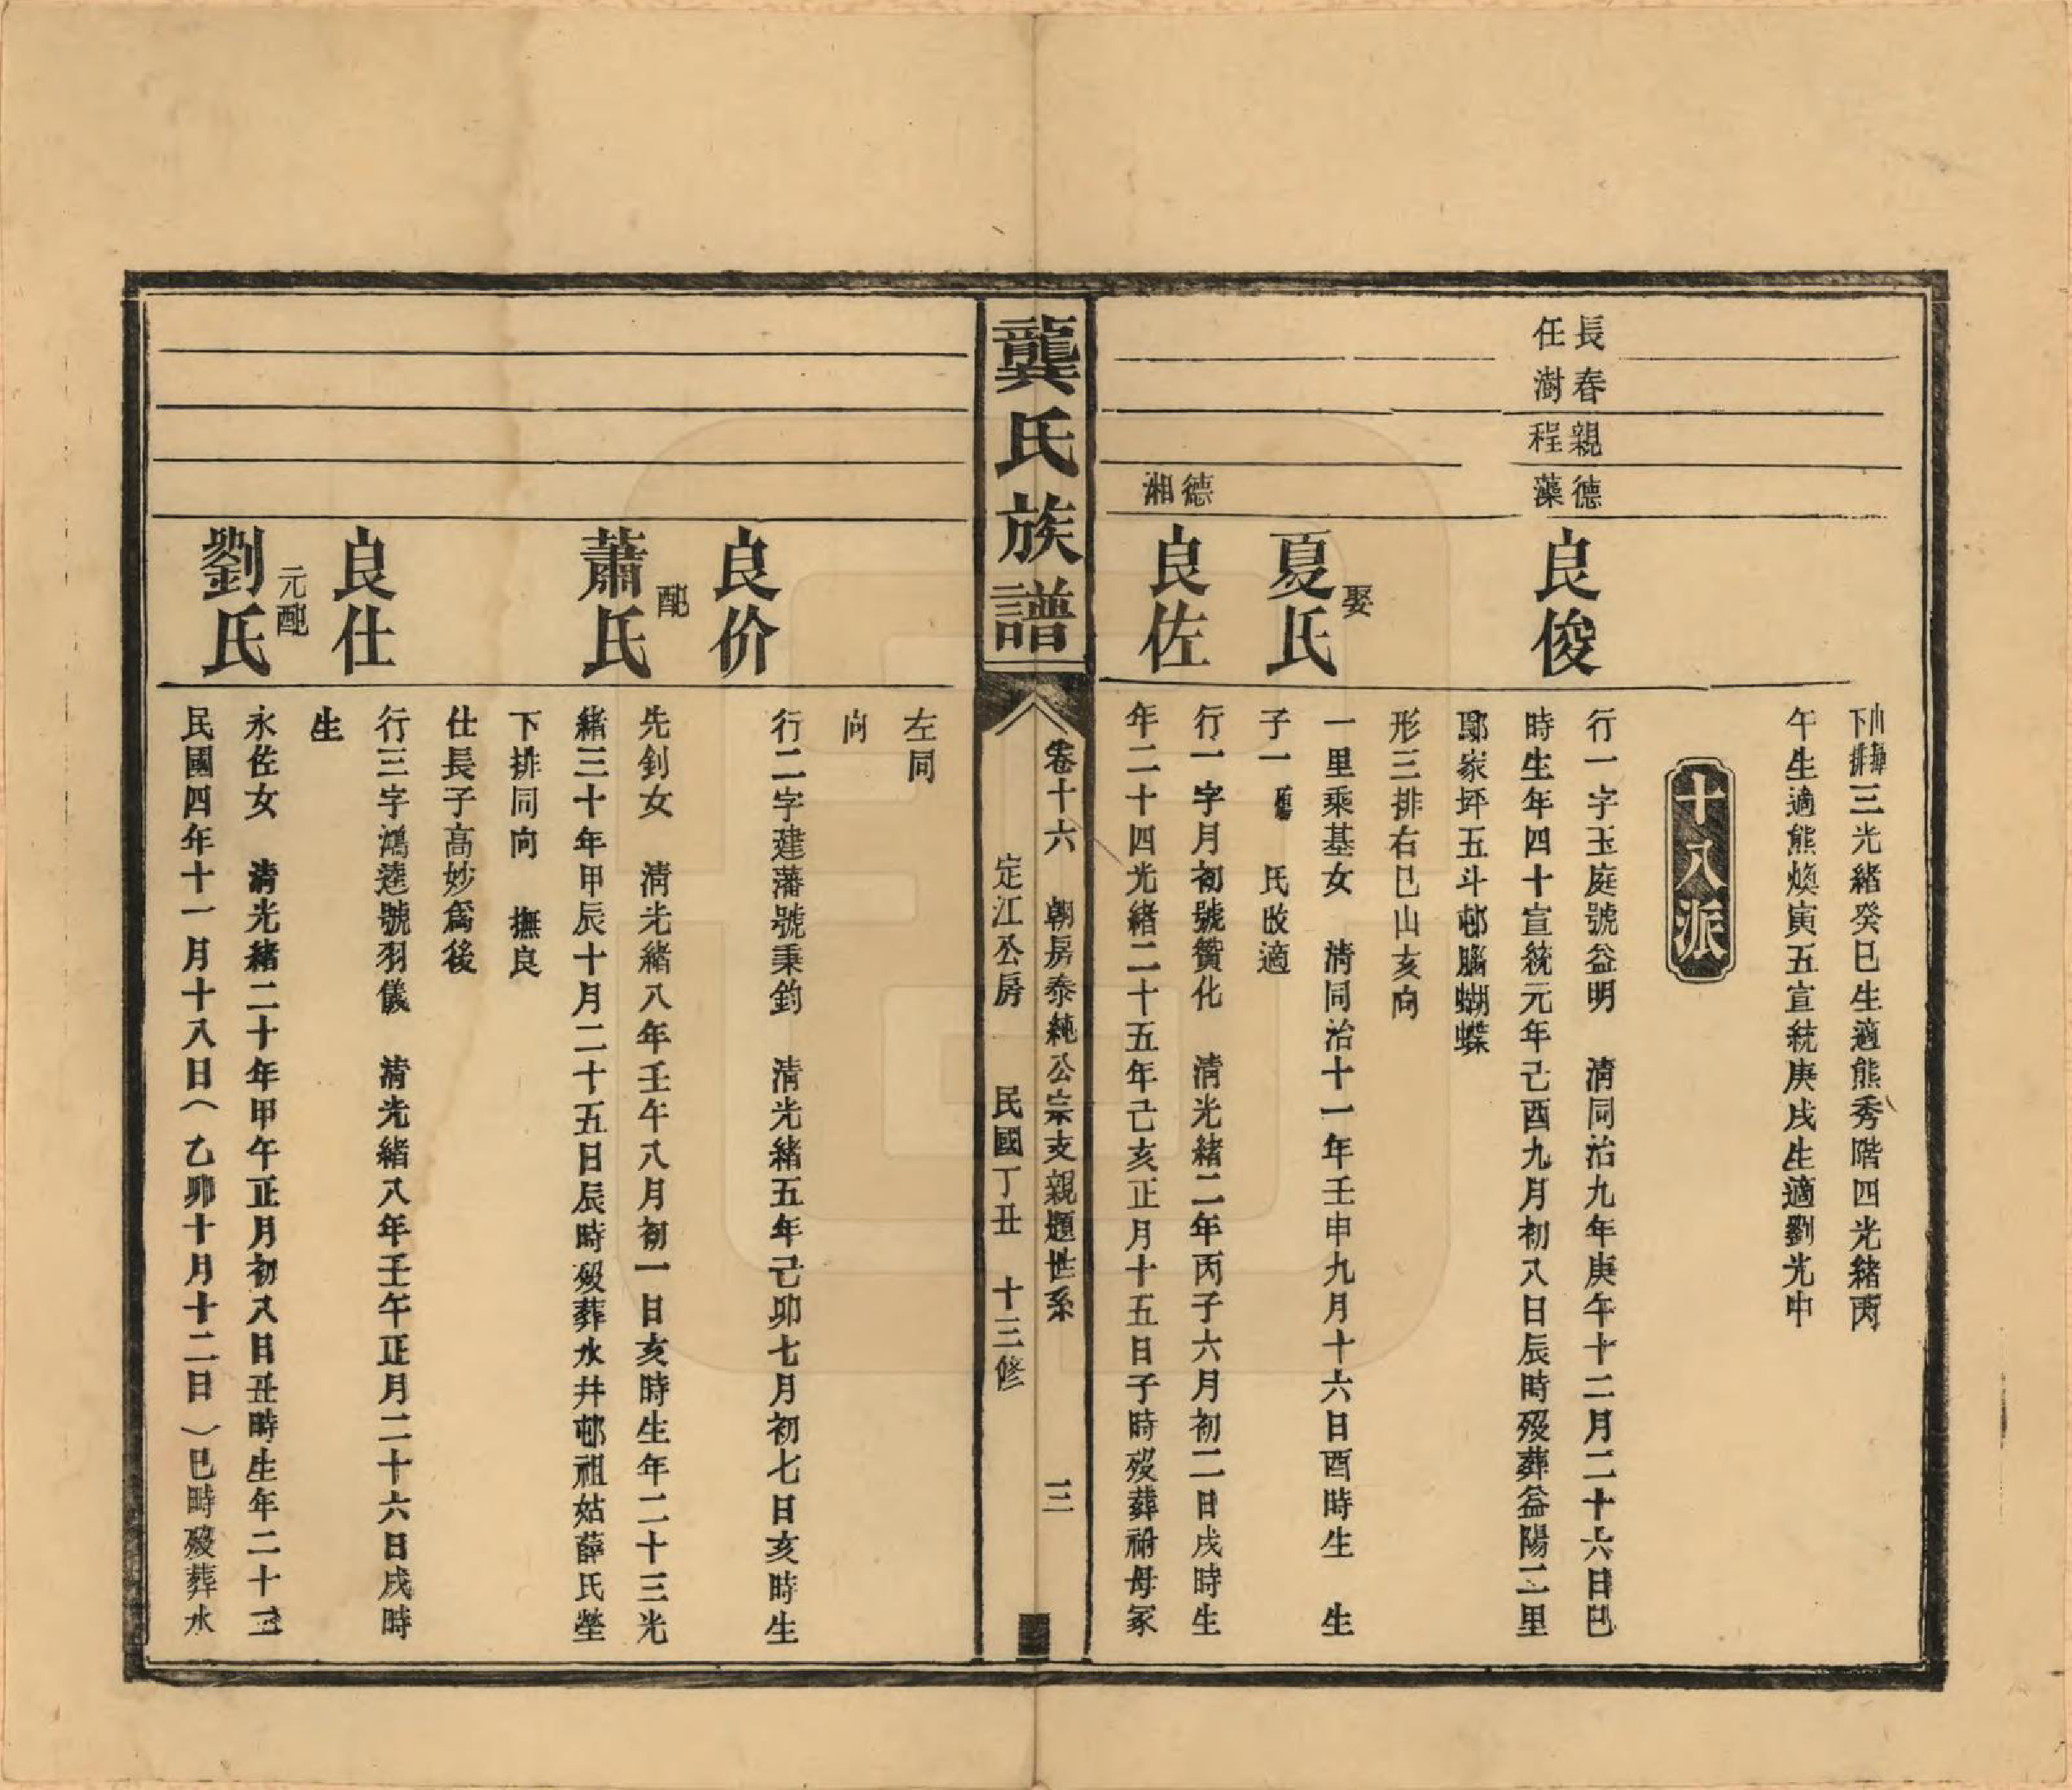 下排三光緒癸巳生適熊秀階四光緒丙
午生適熊煥寅五宣統庚戌生適劉光中
十八派
長春親德
任澍程藻
良俊
行一字玉庭號益明　清同治九年庚午十二月二十六日巳
時生年四十宣統元年己酉九月初八日辰時歿葬益陽二里
鄢家坪五斗邨腦蝴蝶
形三排右巳山亥向
娶
夏氏
一里乘基女　清同治十一年壬申九月十六日酉時生　生
子一　氏改適
德
湘
良佐
行一字月初號贊化　清光緒二年丙子六月初二日戌時生
年二十四光緒二十五年己亥正月十五日子時歿葬祔母冢
龔氏族譜
卷十六　朝房泰純公宗支親題世系　三
定江公房　民國丁丑　十三修
左同
向
良价
行二字建藩號秉鈞　清光緒五年己卯七月初七日亥時生
配
蕭氏
先釗女　清光緒八年壬午八月初一日亥時生年二十三光
緒三十年甲辰十月二十五日辰時歿葬水井邨祖姑薛氏塋
下排同向　撫良
仕長子高妙爲後
良仕
行三字鴻逵號羽儀　清光緒八年壬午正月二十六日戌時
生
元配
劉氏
永佐女　清光緒二十年甲午正月初八日丑時生年二十三
民國四年十一月十八日（乙卯十月十二日）巳時歿葬水